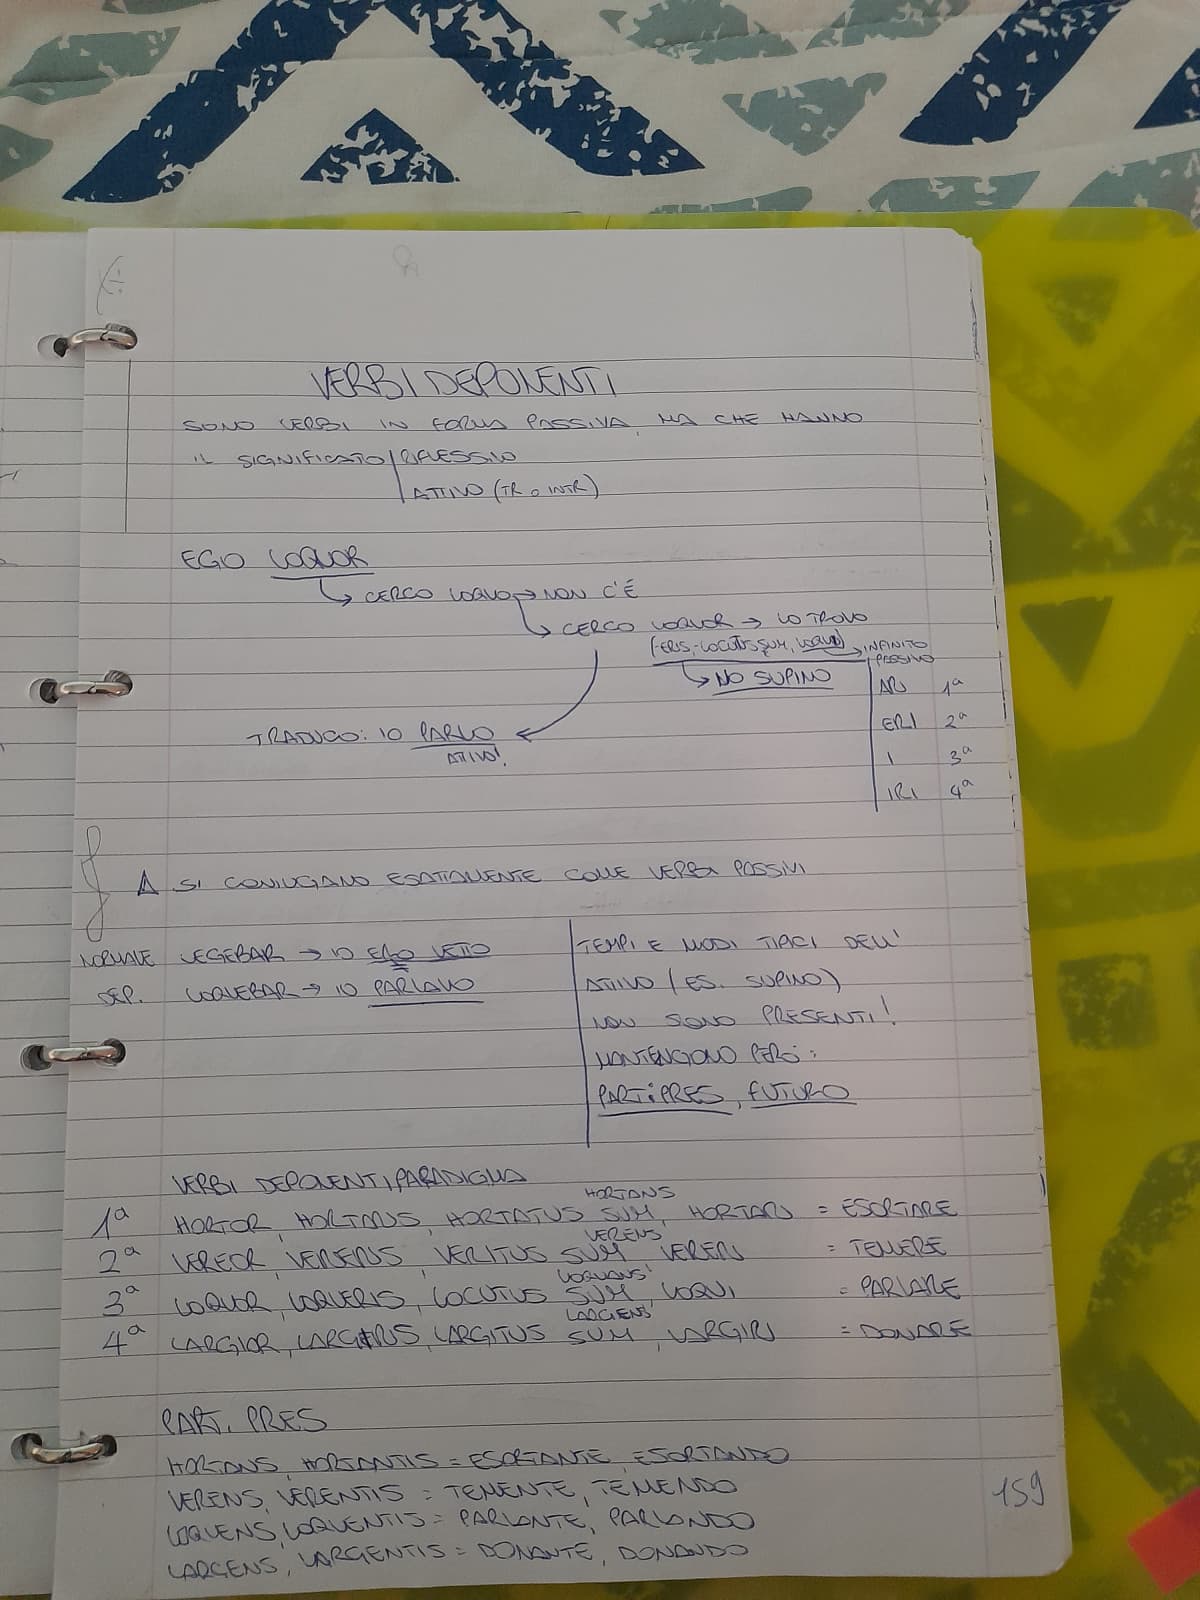 VERBI DEPONENTI
SONO VERBI IN FORMA PASSIVA, MA CHE HANNO
IL SIGNIFICATO RIFLESSIVO
ATTIVO (TR O INTR)
EGO LOQUOR
CERCO LOQUO → NON C'È
CERCO LOQUOR → LO TROVO
(-ERIS, -LOCUTUS SUM, LOQUI) → INFINITO
PASSIVO
NO SUPINO
ARI 1ª
ERI 2ª
I 3ª
IRI 4ª
TRADUCO: IO PARLO
ATTIVO!
SI CONIUGANO ESATTAMENTE COME VERBI PASSIVI
NORMALE LEGEBAR → IO ERO LETTO
DEP. LOQUEBAR → IO PARLAVO
TEMPI E MODI TIPICI DELL'
ATTIVO (ES. SUPINO)
NON SONO PRESENTI!
MANTENGONO PERÒ:
PART. PRES, FUTURO
VERBI DEPONENTI, PARADIGMA
HORTANS
1ª HORTOR, HORTARIS, HORTATUS SUM, HORTARI = ESORTARE
VERENS
2ª VEREOR, VERERIS, VERITUS SUM VERERI = TEMERE
3ª LOQUOR, LOQUERIS, LOCUTUS SUM, LOQUI = PARLARE
LARGIENS
4ª LARGIOR, LARGIRIS, LARGITUS SUM, LARGIRI = DONARE
PART. PRES
HORTANS, HORTANTIS = ESORTANTE, ESORTANDO
VERENS, VERENTIS = TEMENTE, TEMENDO
LOQUENS, LOQUENTIS = PARLANTE, PARLANDO
LARGENS, LARGENTIS = DONANTE, DONANDO
159